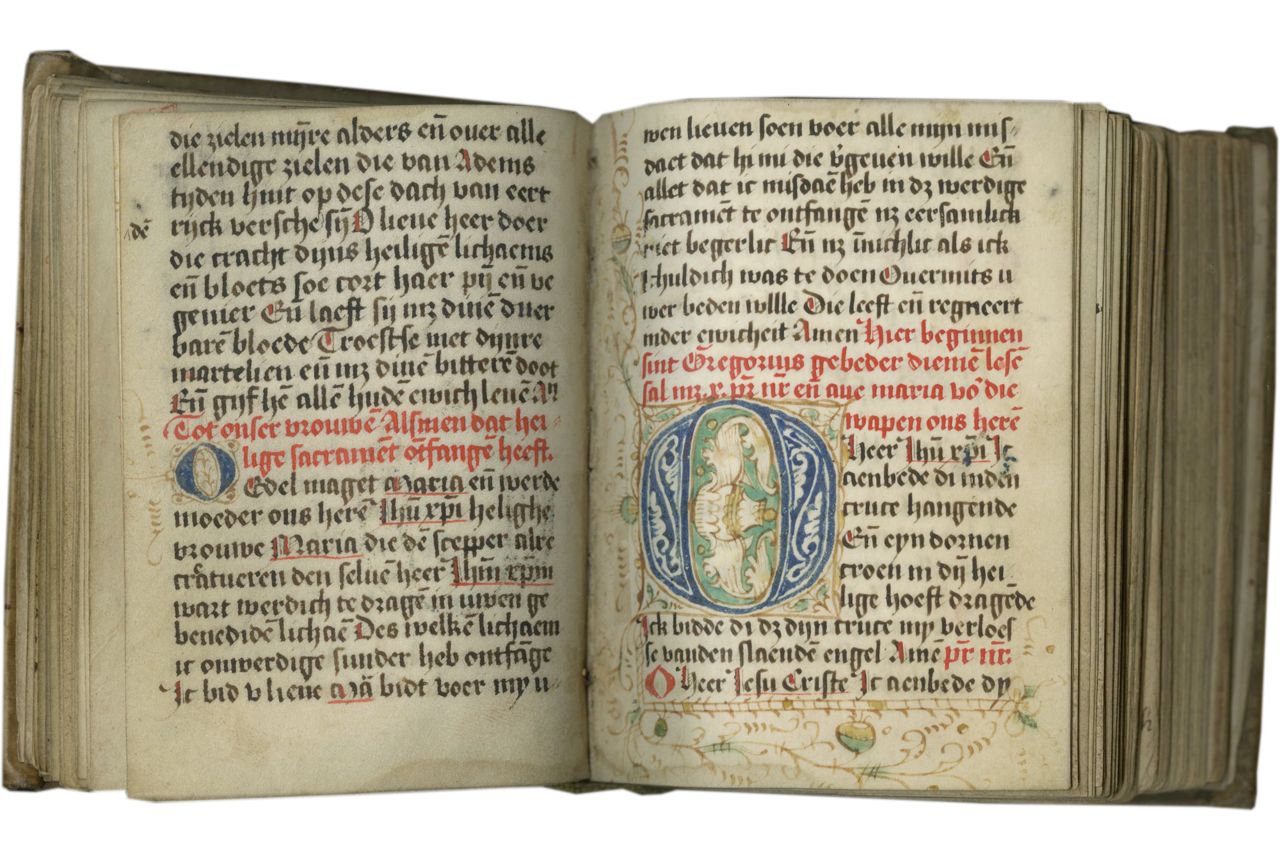 die zielen mijre alders eñ ouer alle
ellendige zielen die van Adems
tyden huit op dese dach van eert
dē rijck versche sijO lieue heer doer
die cracht dijns heiligē lichaems
eñ bloets soe cort haer pij eñ ve
geuier Eñ laeft sij mz dinē duer
barē bloede Troestse met dijnre
martelien eñ mz dinē bitterē doot
Eñ gijf hē allē hudē ewich leuē
Tot onser vrouwē Alsmen dat hei
lige sacramēt ōtfangē heeft.
O Edel maget Maria eñ werde
moeder ons herē Ihū xp̄i heligthe
vrouwe Maria die dē scepper alre
creatueren den seluē heer Ihm̄ xp̄m
wart werdich te dragē in uwen ge
benedidē lichaē Des welkē lichaem
ic onwerdige sunder heb ontfāge
Ic bid v lieue Mā bidt voer my u
wen lieuen soen voer alle mijn mis
daet dat hi mi die v̄geuen wille Eñ
allet dat ic misdaē heb in dz werdige
sacramēt te ontfangē nz eersamlick
niet begerlic Eñ nz īnichlic als ick
schuldich was te doen Ouermits u
wer beden wllle Die leeft eñ regneert
inder ewicheit Amen Hier beginnen
sint Gregorius gebeder diemē lesē
sal mz .x. pr̄ nr̄ eñ aue maria vō die
wapen ons herē
O Heer Ihū xp̄i Ic
aenbede di inden
cruce hangende
Eñ eyn dornen
croen in dij hei
lige hoeft dragēde
Ick bidde di dz dijn cruce my verloes
se vanden slaendē engel Amē pr̄ nr̄.
O Heer Iesu Criste Ic aenbede dy